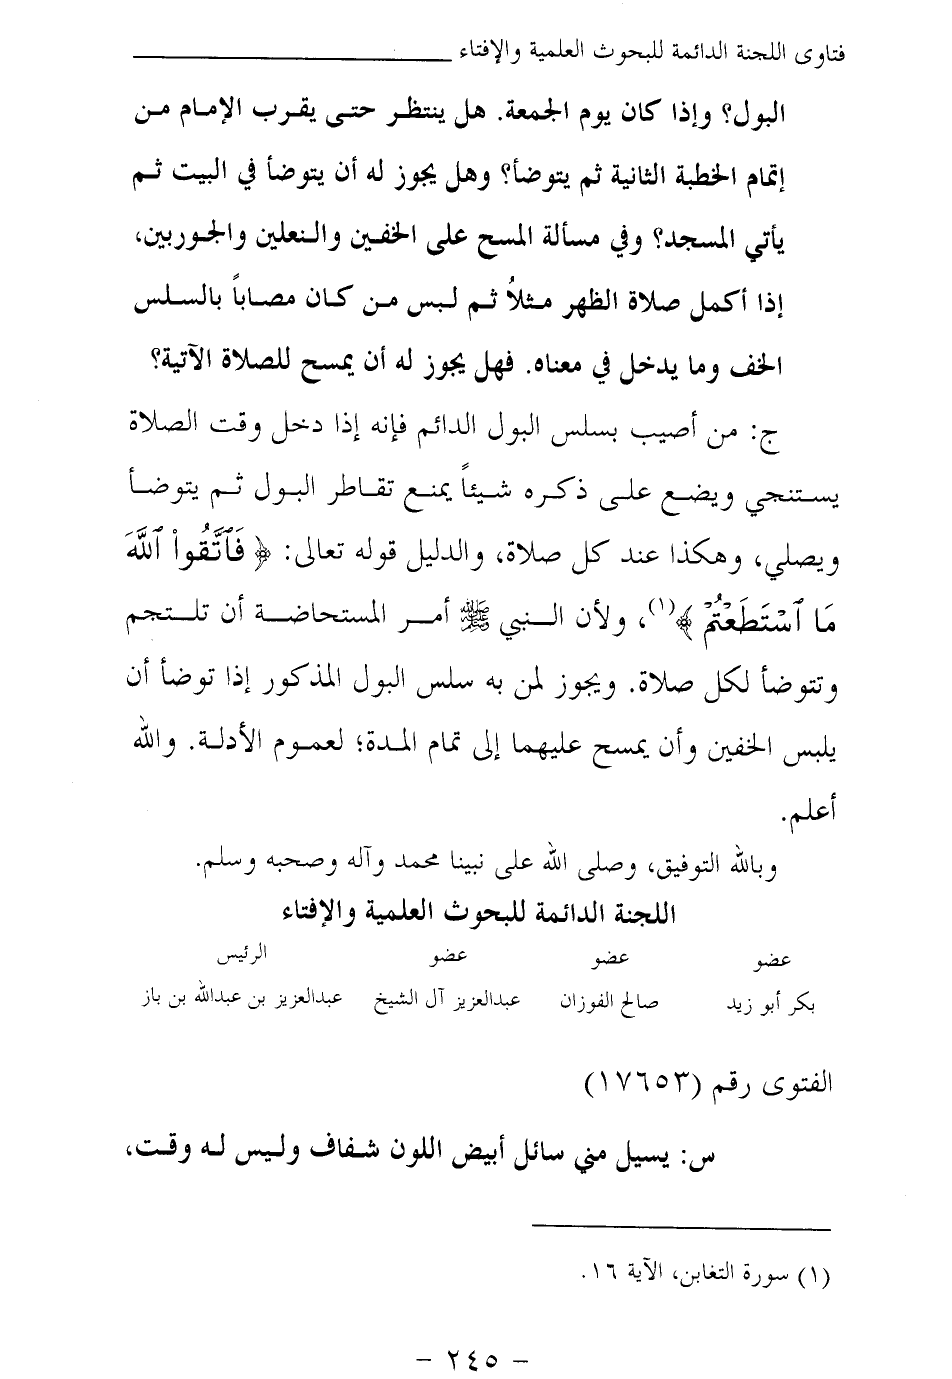 فتاوى اللجنة الدائمة للبحوث العلمية والإفتاء
البول؟ وإذا كان يوم الجمعة. هل ينتظر حتى يقرب الإمام من
إتمام الخطبة الثانية ثم يتوضأ؟ وهل يجوز له أن يتوضأ في البيت ثم
يأتي المسجد؟ وفي مسألة المسح على الخفين والنعلين والجوربين،
إذا أكمل صلاة الظهر مثلاً ثم لبس من كان مصاباً بالسلس
الخف وما يدخل في معناه. فهل يجوز له أن يمسح للصلاة الآتية؟
ج: من أصيب بسلس البول الدائم فإنه إذا دخل وقت الصلاة
يستنجي ويضع على ذكره شيئاً يمنع تقاطر البول ثم يتوضأ
ويصلي، وهكذا عند كل صلاة، والدليل قوله تعالى: ﴿ فَٱتَّقُوا۟ ٱللَّهَ
مَا ٱسْتَطَعْتُمْ ﴾(١)، ولأن النبي ﷺ أمر المستحاضة أن تلتجم
وتتوضأ لكل صلاة. ويجوز لمن به سلس البول المذكور إذا توضأ أن
يلبس الخفين وأن يمسح عليهما إلى تمام المدة؛ لعموم الأدلة. والله
أعلم.
وبالله التوفيق، وصلى الله على نبينا محمد وآله وصحبه وسلم.
اللجنة الدائمة للبحوث العلمية والإفتاء
عضو عضو عضو الرئيس
بكر أبو زيد صالح الفوزان عبدالعزيز آل الشيخ عبدالعزيز بن عبدالله بن باز
الفتوى رقم (١٧٦٥٣)
س: يسيل مني سائل أبيض اللون شفاف وليس له وقت،
(١) سورة التغابن، الآية ١٦.
- ٢٤٥ -